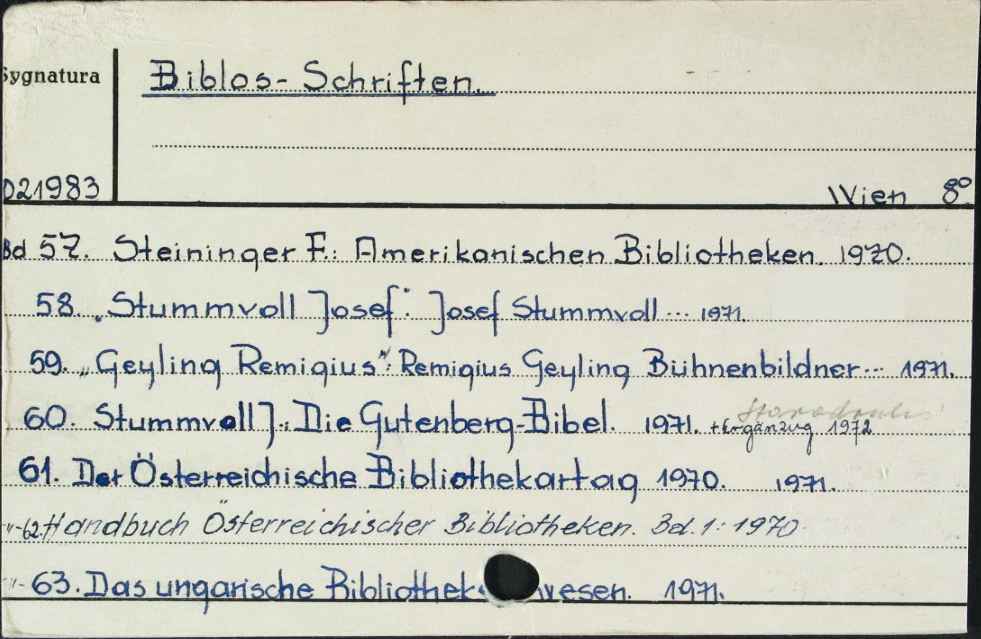 Sygnatura
Biblos-Schriften.
021983
Wien 8º
Bd 57. Steininger F.: Amerikanischen Bibliotheken. 1970.
58. "Stummvoll Josef": Josef Stummvoll... 1971.
59. „Geyling Remigius": Remigius Geyling Bühnenbildner... 1971.
60. Stummvoll J.: Die Gutenberg-Bibel. 1971. + Ergänzug 1972
61. Der Österreichische Bibliothekartag 1970. 1971.
-"-62. Handbuch Österreichischer Bibliotheken. Bd. 1: 1970
-"- 63. Das ungarische Bibliothek wesen. 1971.